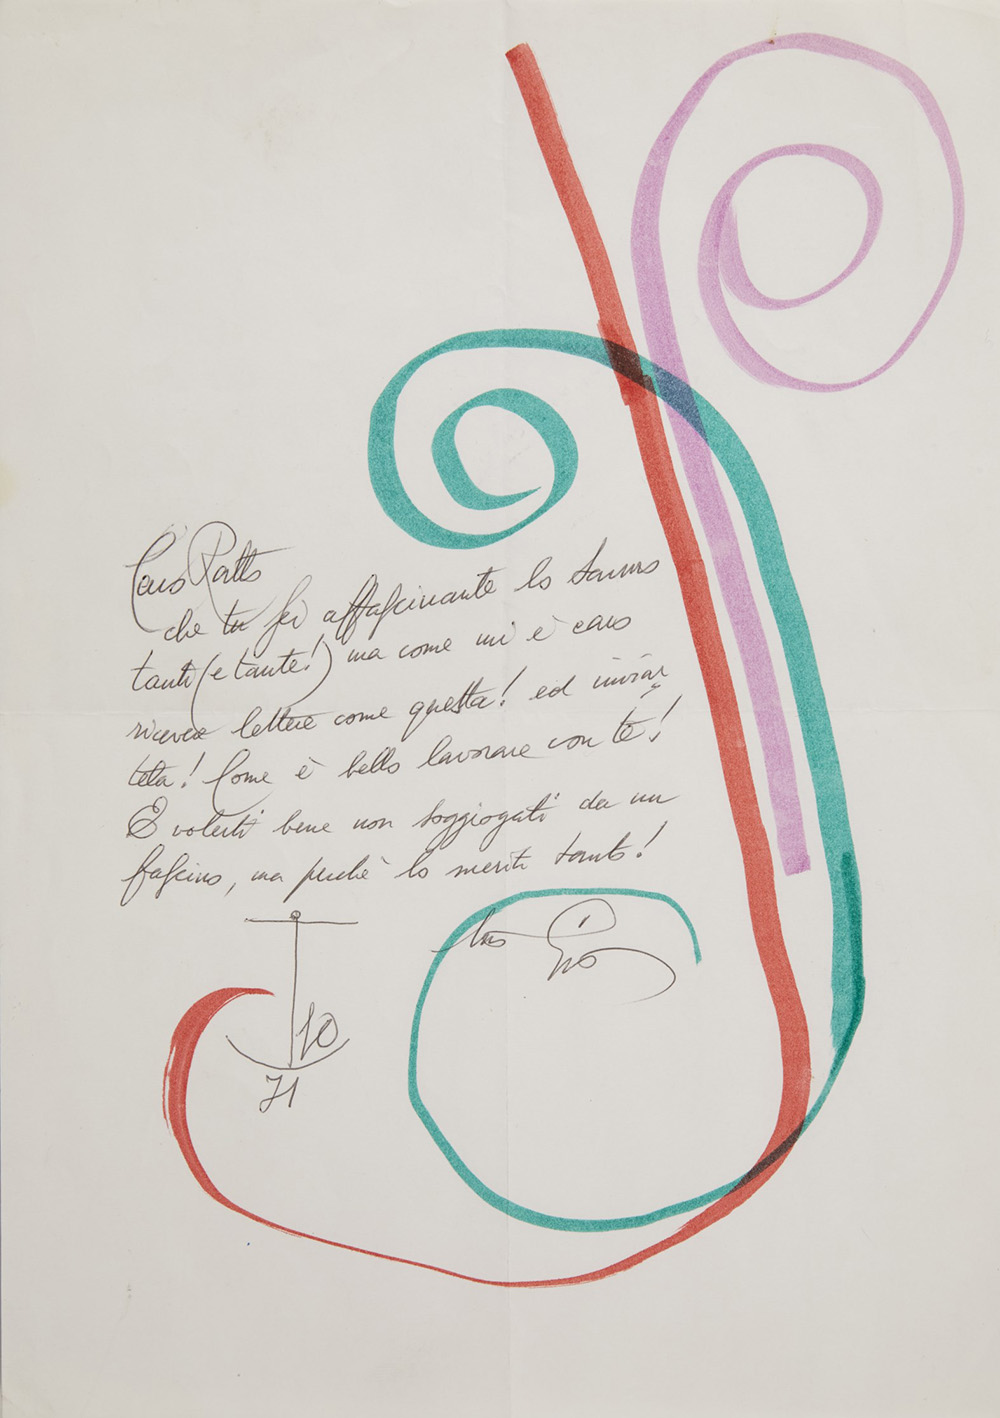 Caro Ratto
che tu sei affascinante lo sanno
tanti (e tante!) ma come mi è caro
ricevere lettere come questa! ed inviar
tela! Come è bello lavorare con te!
E volerti bene non soggiogati da un
fascino, ma perchè lo meriti tanto!
tuo Gio
10
71